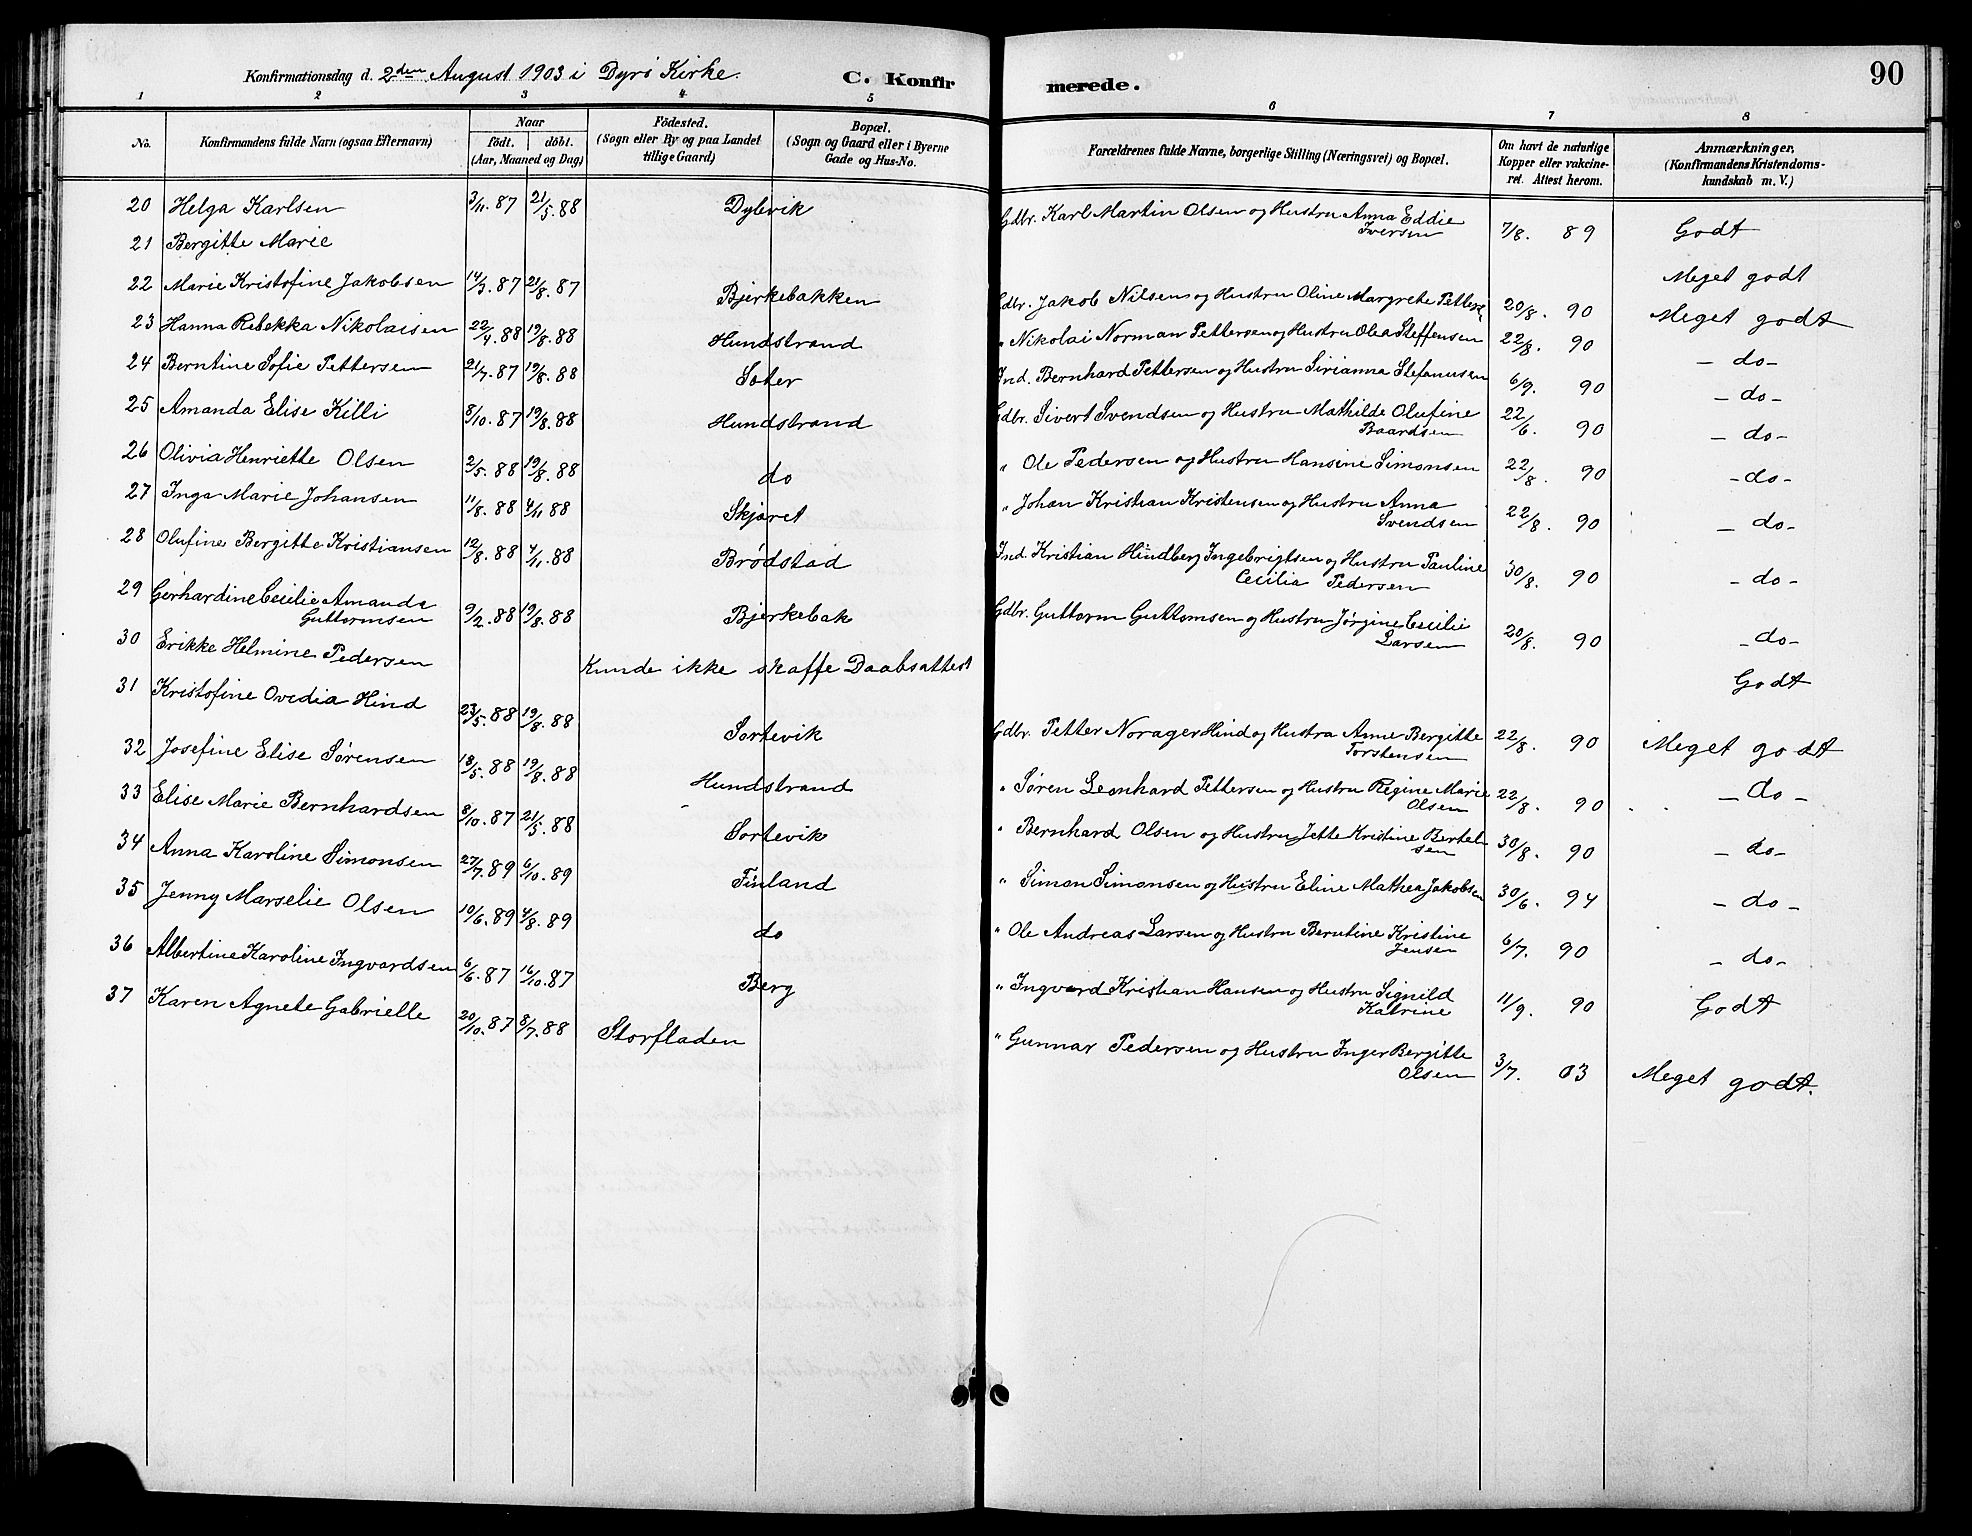 Konfirmationsdag d. 2den August 1903 i Dyrö Kirke. C. Konfirmerede. 90
1 2 3 4 5 6 7 8
No. Konfirmandens fulde Navn (ogsaa Efternavn) Naar födt. döbt. (Aar, Maaned og Dag) Födested. (Sogn eller By og paa Landet tillige Gaard) Bopæl. (Sogn og Gaard eller i Byerne Gade og Hus-No. Forældrenes fulde Navne, borgerlige Stilling (Næringsvei) og Bopæl. Om havt de naturlige Kopper eller vakcineret. Attest herom. Anmærkninger, (Konfirmandens Kristendomskundskab m. V.)
20 Helga Karlsen 3/11. 87 21/5. 88 Dylevik Gdbr. Karl Martin Olsen og Hustru Anna Eddie Iversen 7/8. 89 Godt
21 Bergitte Marie Meget godt
22 Marie Kristofine Jakobsen 14/7. 87 21/8. 87 Bjerkebakken Gdbr. Jakob Nilsen og Hustru Oline Margrete Petters. 20/8. 90 Meget godt
23 Hanna Rebekka Nikolaisen 22/4. 88 19/8. 88 Hundstrand " Nikolai Norman Pettersen og Hustru Olea Steffensen 22/8. 90 - do -
24 Berntine Sofie Pettersen 21/7. 87 19/8. 88 Soter Ind. Bernhard Pettersen og Hustru Sirianna Stefanusen 6/9. 90 - do -
25 Amanda Elise Killi 8/10. 87 19/8. 88 Hundstrand Gdbr. Sivert Svendsen og Hustru Mathilde Olufine Baardsen 22/6. 90 - do -
26 Olivia Henriette Olsen 2/5. 88 19/8. 88 do " Ole Pedersen og Hustru Hansine Simonsen 22/8. 90 - do -
27 Inga Marie Johansen 11/8. 88 4/11. 88 Skjæret " Johan Kristian Kristensen og Hustru Anna Svendsen 22/8. 90 - do -
28 Olufine Bergitte Kristiansen 12/8. 88 4/11. 88 Brødstad Ind. Kristian Hindberg Ingebrigtsen og Hustru Pauline Cecilia Pedersen 30/8. 90 - do -
29 Gerhardine Cecilie Amanda Guttormsen 9/2. 88 19/8. 88 Bjerkebak Gdbr. Guttorm Guttomsen og Hustru Jørgine Cecilie Larsen 20/8. 90 - do -
30 Erikke Helmine Pedersen Kunde ikke skaffe Daabsattest Godt
31 Kristofine Ovedia Hind 23/5. 88 19/8. 88 Sortevik Gdbr. Petter Norager Hind og Hustru Anne Bergitte Torstensen 22/8. 90 Meget godt
32 Josefine Elise Sørensen 18/5. 88 19/8. 88 Hundstrand " Søren Leonhard Pettersen og Hustru Regine Marie Olsen 22/8. 90 - do -
33 Elise Marie Bernhardsen 8/10. 87 21/5. 88 Sortevik " Bernhard Olsen og Hustru Jette Kristine Bertelsen 30/8. 90 - do -
34 Anna Karoline Simonsen 27/7. 89 6/10. 89 Finland " Simon Simonsen og Hustru Eline Mathea Jakobsen 30/6. 94 - do -
35 Jenny Marselie Olsen 10/6. 89 4/8. 89 do " Ole Andreas Larsen og Hustru Berntine Kristine Jensen 6/7. 90 - do -
36 Albertine Karoline Ingvardsen 6/6. 87 16/10. 87 Berg " Ingvard Kristian Hansen og Hustru Signild Katrine 11/9. 90 Godt
37 Karen Agnete Gabrielle 20/10. 87 8/7. 88 Storfladen " Gunnar Pedersen og Hustru Inger Bergitte Olsen 3/7. 03 Meget godt.